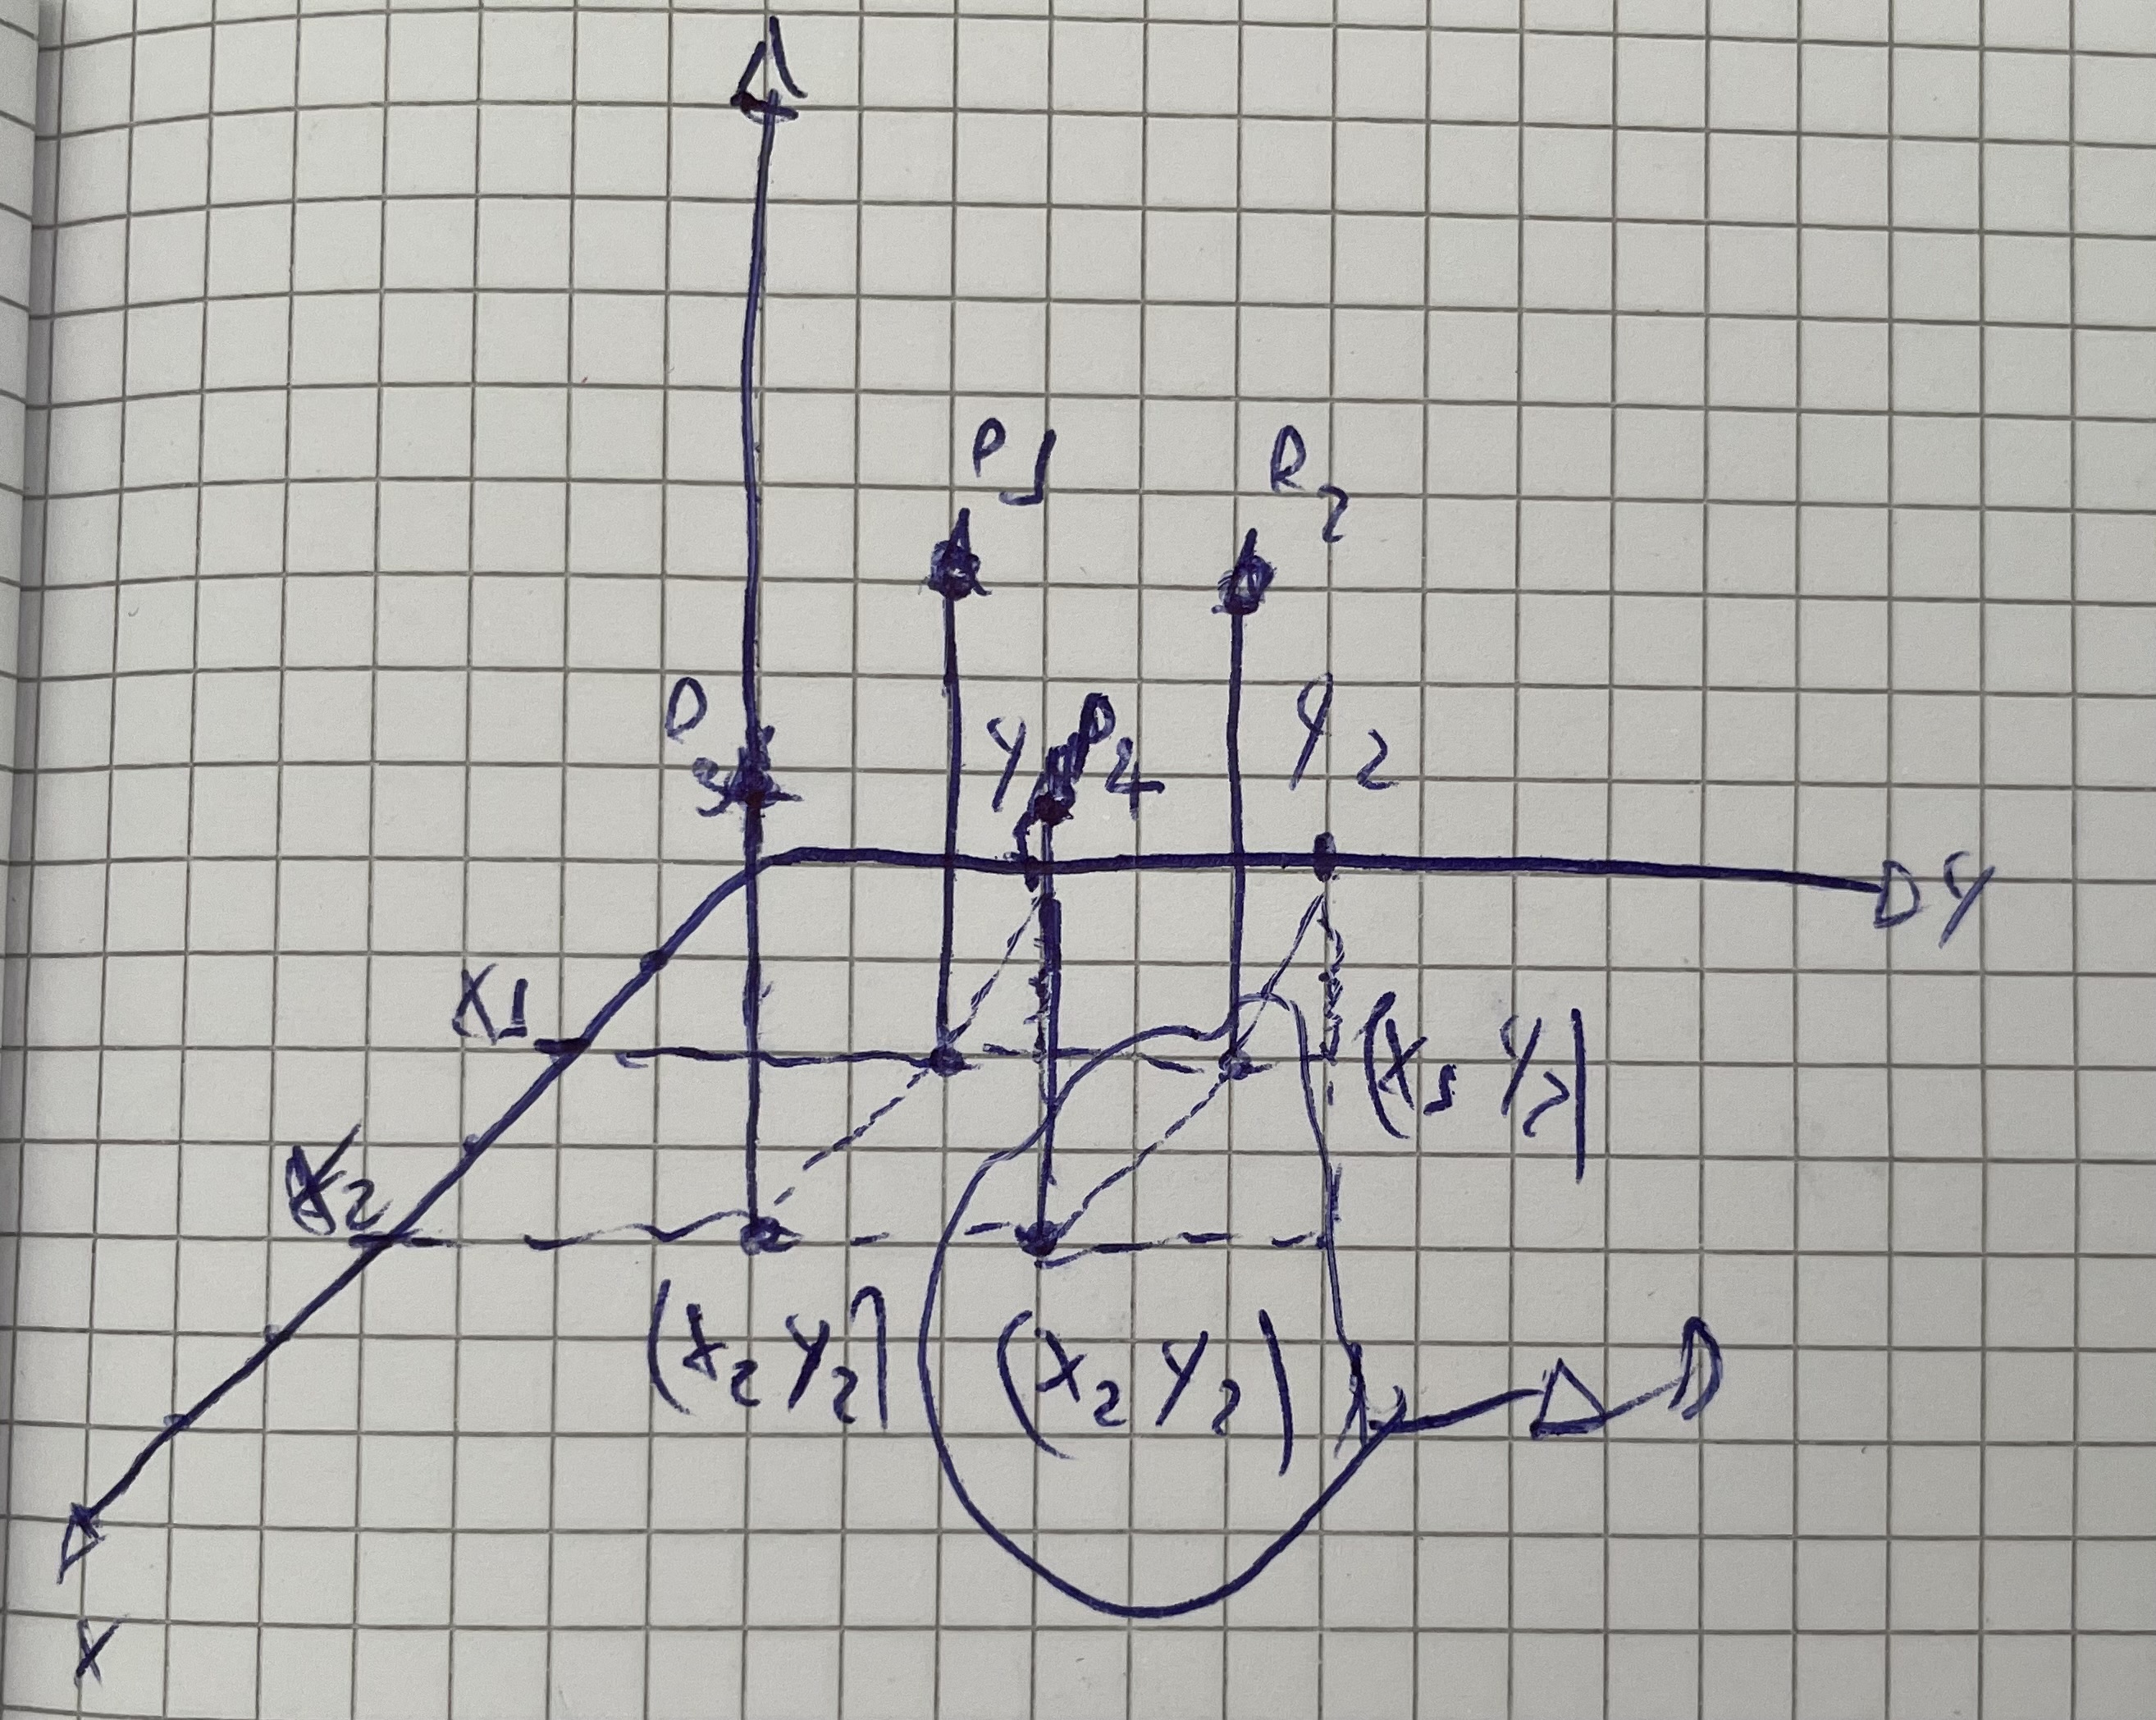 P1
P2
P
3
Y1
P4
Y2
Y
X1
(X1 Y2)
X2
(X2 Y2)
(X2 Y2)
D
X